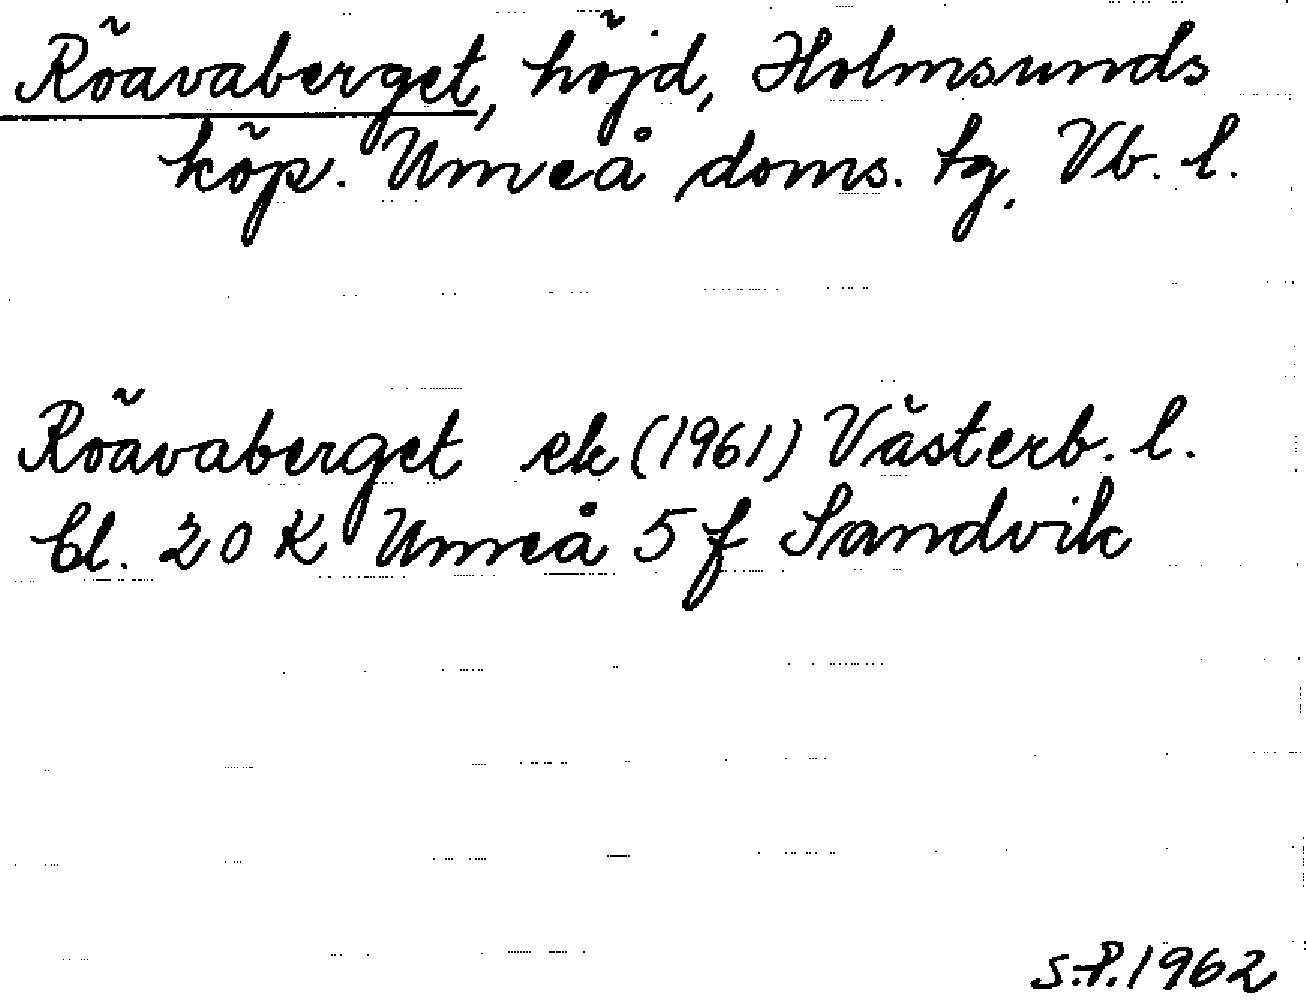 Röavaberget, höjd, Holmsunds
köp. Umeå doms. tg. Vb. l.
Röavaberget ek (1961) Västerb. l.
Bl. 20 K Umeå 5 f Sandvik
S.P. 1962